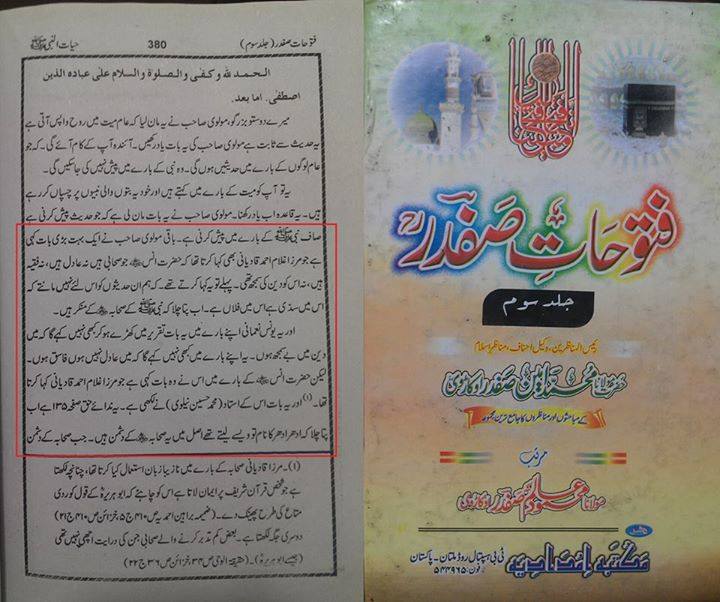 حیات النبی ﷺ 380 فتوحات صفدر (جلد سوم)
الحمد للہ وکفی والصلوة والسلام علی عبادہ الذین
اصطفی. اما بعد.
میرے دوستو بزرگو، مولوی صاحب نے یہ مان لیا کہ عام میت میں روح واپس آتی ہے
یہ حدیث سے ثابت ہے مولوی صاحب کی یہ بات یاد رکھیں۔ آئندہ آپ کے کام آئے گی۔ کہ جو
عام لوگوں کے بارے میں حدیثیں ہوں گی۔ وہ نبی کے بارے میں پیش نہیں کی جاسکیں گی۔
یہ تو آپ کو میت کے بارے میں کہتے ہیں اور خود یہ بتوں والی نبیوں پر چسپاں کر رہے
ہیں۔ یہ قاعدہ اب یاد رکھنا۔ مولوی صاحب نے یہ بات مان لی ہے کہ جو حدیث پیش کرنی ہے
صاف نبی ﷺ کے بارے میں پیش کرنی ہے۔ باقی مولوی صاحب نے ایک بہت بڑی بات کہی
ہے جو مرزا غلام احمد قادیانی بھی کہا کرتا تھا کہ حضرت انسؓ جو صحابی ہیں نہ عادل ہیں، نہ فقیہ
ہیں، نہ اس کو دین کی سمجھ تھی۔ پہلے تو یہ کہا کرتے تھے۔ کہ ہم ان حدیثوں کو اس لئے نہیں مانتے کہ
اس میں سدی ہے اس میں فلاں ہے۔ اب پتا چلا کہ نبی ﷺ کے صحابہؓ کے منکر ہیں۔
اور یہ یونس نعمانی اپنے بارے میں یہ بات تقریر میں کھڑے ہو کر بھی نہیں کہے گا کہ میں
دین میں بے سمجھ ہوں۔ یہ اپنے بارے میں بھی نہیں کہے گا کہ میں عادل نہیں ہوں فاسق ہوں۔
لیکن حضرت انسؓ کے بارے میں اس نے وہ بات کہی ہے جو مرزا غلام احمد قادیانی کہا کرتا
تھا۔(۱) اور یہ بات اس کے استاد (محمد حسین نیلوی) نے لکھی ہے۔ یہ ندائے حق صفحہ ۱۳۵ ہے اب
پتا چلا کہ ادھر ادھر کا نام تو ویسے لیتے تھے اصل میں یہ صحابہؓ کے دشمن ہیں۔ جب صحابہ کے دشمن
(۱)۔ مرزا قادیانی صحابہ کے بارے میں نازیبا زبان استعمال کیا کرتا تھا، چنانچہ لکھتا
ہے جو شخص قرآن شریف پر ایمان لاتا ہے اس کو چاہیے کہ ابو ہریرہؓ کے قول کو ردی
متاع کی طرح پھینک دے۔ (ضمیمہ براہین احمدیہ ص ۴۱۰ ج ۵ خزائن ص ۴۱۰ ج ۲۱)
دوسری جگہ لکھتا ہے۔ بعض کم تدبر کرنے والے صحابی جن کی درایت اچھی نہیں تھی
(جیسے ابو ہریرہؓ)۔ (حقیقۃ الوحی ص ۳۴ خزائن ص ۳۶ ج ۲۲)
فتوحاتِ صفدرؒ
جلد سوم
رئیس المناظرین، وکیل احناف، مناظر اسلام
حضرت مولانا محمد امین صفدر اوکاڑوی
کے مباحثوں اور مناظروں کا جامع ترین مجموعہ
مرتب
مولانا محمود عالم صفدر اوکاڑوی
مکتبہ امدادیہ ٹی بی ہسپتال روڈ ملتان - پاکستان
فون: ۵۴۴۹۶۵